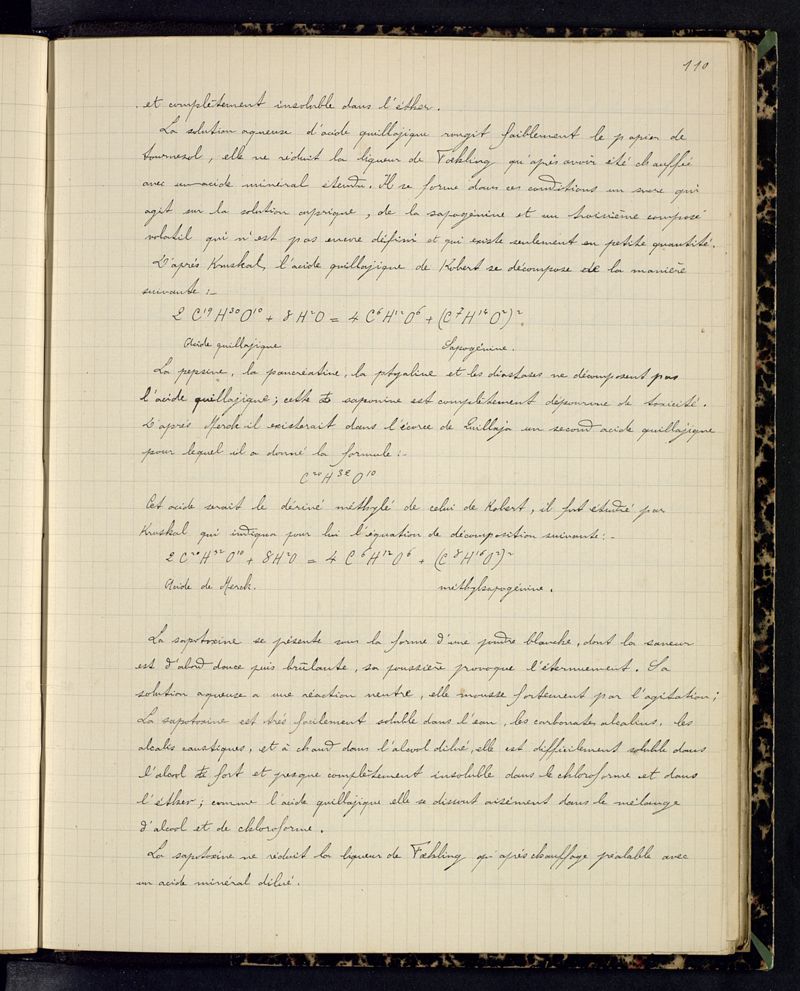 110
et complètement insoluble dans l'éther.
La solution aqueuse d'acide quillajique rougit faiblement le papier de
tournesol, elle ne réduit la liqueur de Fœhling qu'après avoir été chauffée
avec un acide minéral étendu. Il se forme dans ces conditions un sucre qui
agit sur la solution cuprique, de la sapogénine et un troisième composé
volatil qui n'est pas encore défini et qui existe seulement en petite quantité.
D'après Kruskal, l'acide quillajique de Kobert se décompose de la manière
suivante :-
2 C¹⁹H³⁰O¹⁰ + 8 H²O = 4 C⁶H¹²O⁶ + (C⁷H¹⁴O²)².
Acide quillajique Sapogénine.
La pepsine, la pancréatine, la ptyaline et les diastases ne décomposent pas
l'acide quillajique; cette saponine est complètement dépourvue de toxicité.
D'après Merck il existerait dans l'écorce de Quillaja un second acide quillajique
pour lequel il a donné la formule :-
C²⁰H³²O¹⁰
Cet acide serait le dérivé méthylé de celui de Kobert, il fut étudié par
Kruskal qui indiqua pour lui l'équation de décomposition suivante :-
2 C²⁰H³²O¹⁰ + 8H²O = 4 C⁶H¹²O⁶ + (C⁸H¹⁶O²)²
Acide de Merck. méthylsapogénine.
La sapotoxine se présente sous la forme d'une poudre blanche, dont la saveur
est d'abord douce puis brûlante, sa poussière provoque l'éternuement. Sa
solution aqueuse a une réaction neutre, elle mousse fortement par l'agitation;
La sapotoxine est très facilement soluble dans l'eau, les carbonates alcalins, les
alcalis caustiques, et à chaud dans l'alcool dilué, elle est difficilement soluble dans
l'alcool fort et presque complètement insoluble dans le chloroforme et dans
l'éther; comme l'acide quillajique elle se dissout aisément dans le mélange
d'alcool et de chloroforme.
La sapotoxine ne réduit la liqueur de Fœhling qu'après chauffage préalable avec
un acide minéral dilué.